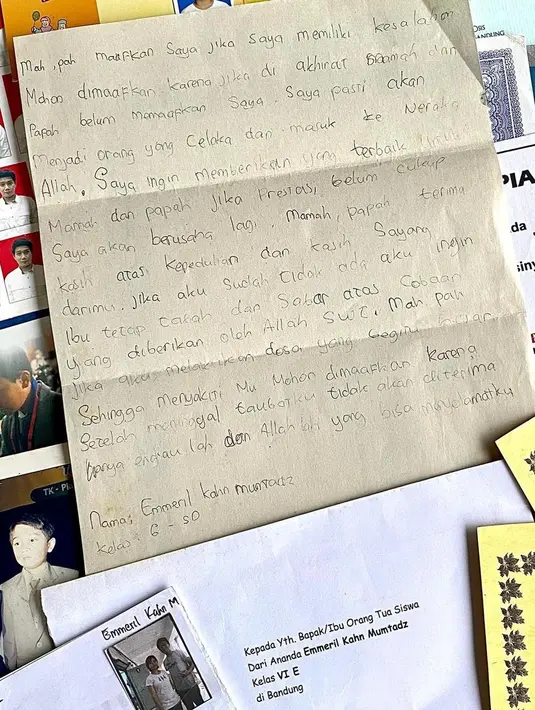 Mah, pah maafkan Saya jika saya memiliki kesalahan
Mohon dimaafkan karena jika di akhirat Mamah dan
Papah belum memaafkan Saya. Saya pasti akan
Menjadi orang yang Celaka dan masuk ke Neraka
Allah. Saya ingin memberikan yang terbaik untuk
Mamah dan papah jika Prestasi belum cukup
Saya akan berusaha lagi. Mamah, papah terima
kasih atas kepedulian dan kasih Sayang
darimu. Jika aku Sudah tidak ada aku ingin
Ibu tetap tabah dan Sabar atas Cobaan
yang diberikan oleh Allah SWT. Mah pah
Jika aku melakukan dosa yang begitu
Sehingga menyakiti Mu Mohon dimaafkan karena
Setelah meninggal taubatku tidak akan diterima
hanya engkau lah dan Allah lah yang bisa menyelamatku
Nama: Emmeril Kahn mumtadz
Kelas: 6 - SD
Emmeril Kahn M
Kepada Yth. Bapak/Ibu Orang Tua Siswa
Dari Ananda Emmeril Kahn Mumtadz
Kelas VI E
di Bandung
OSIS
BANDUNG
PIA
da
TK - P